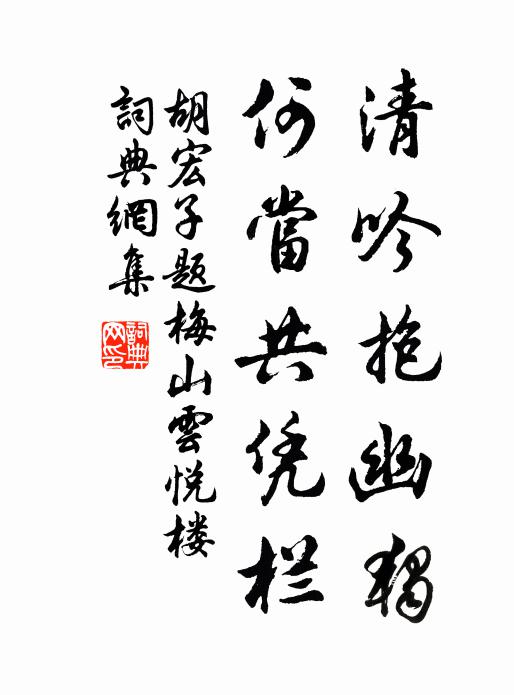 清吟抱幽独
何當共凭栏
胡宏子题梅山雲悦楼
詞典網集
詞典网印